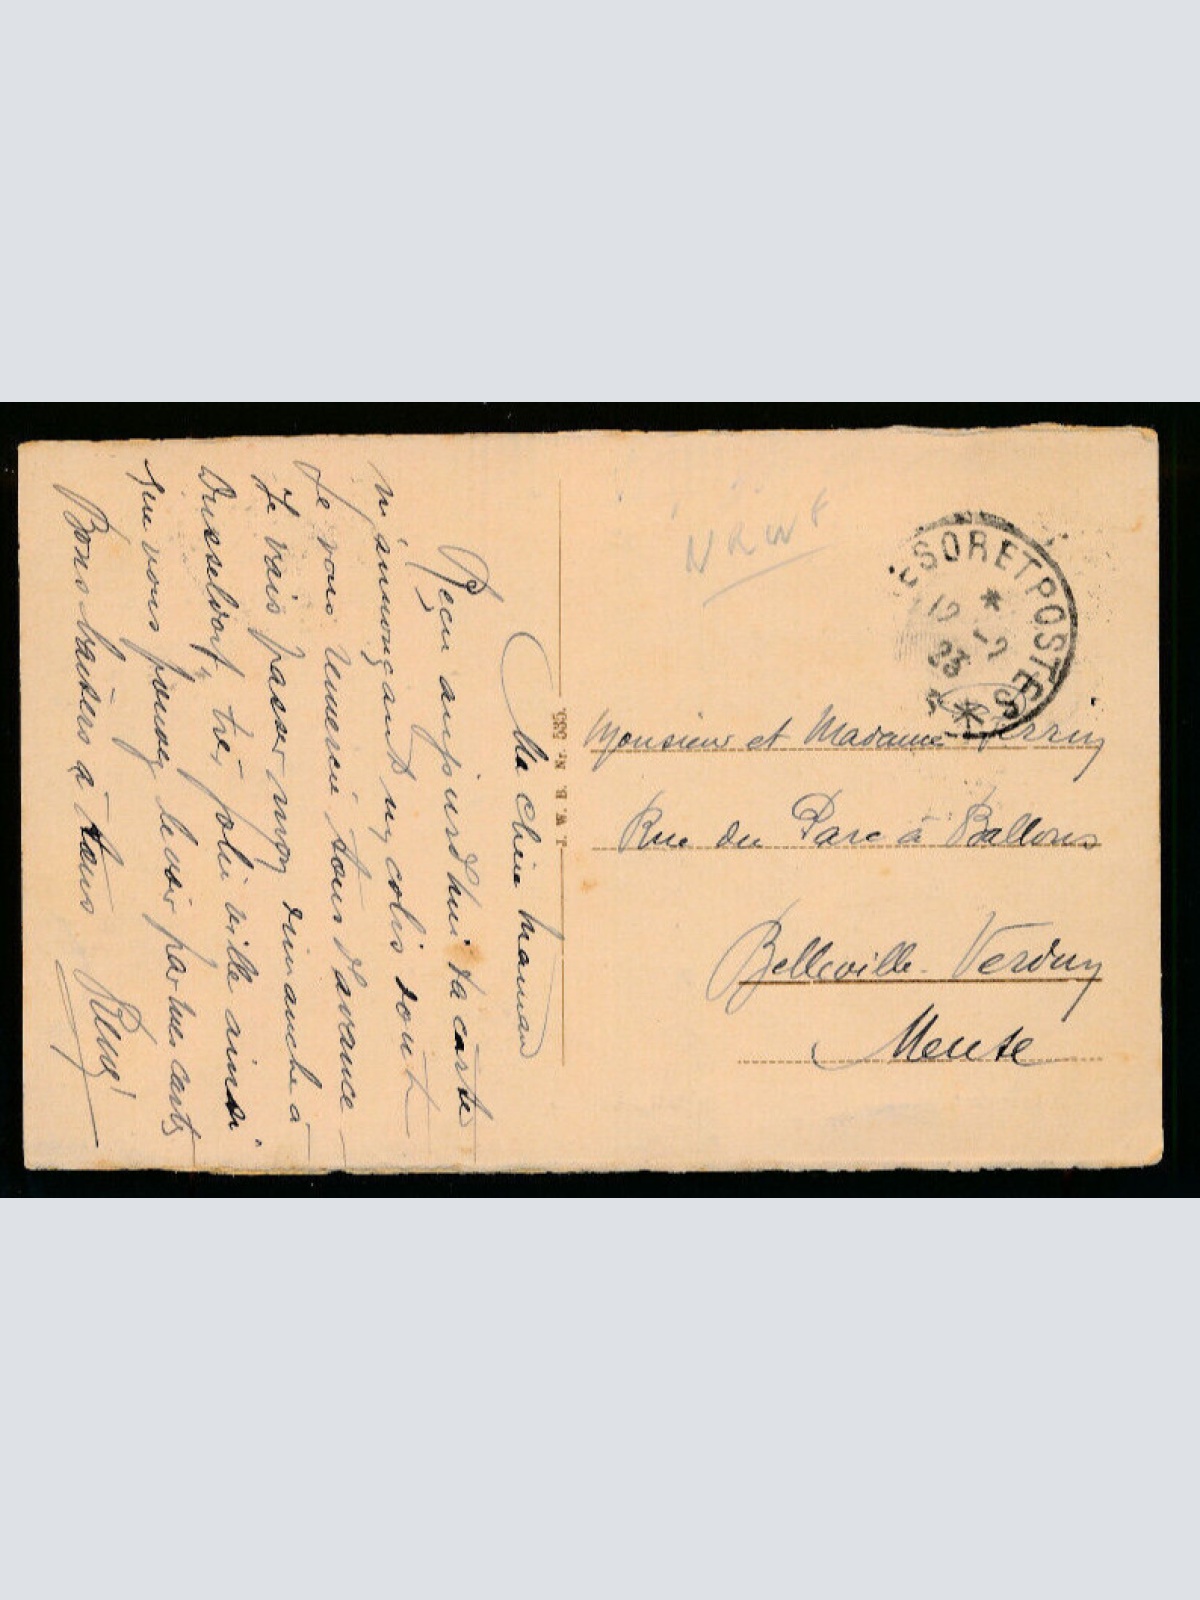 Ma chère maman
Reçu aujourd'hui ta carte
m'annonçant un colis dont
Je vous remercie tous d'avance
Je vais passer mon dimanche à
Dusseldorf, très jolie ville ainsi
que vous pouvez le voir par mes cartes
Bons baisers à tous
J. W. B. Nr. 539.
NRW
ESORETPOSTES
23
Monsieur et Madame Perrin
Rue du Parc à Ballons
Belleville-Verdun
Meuse